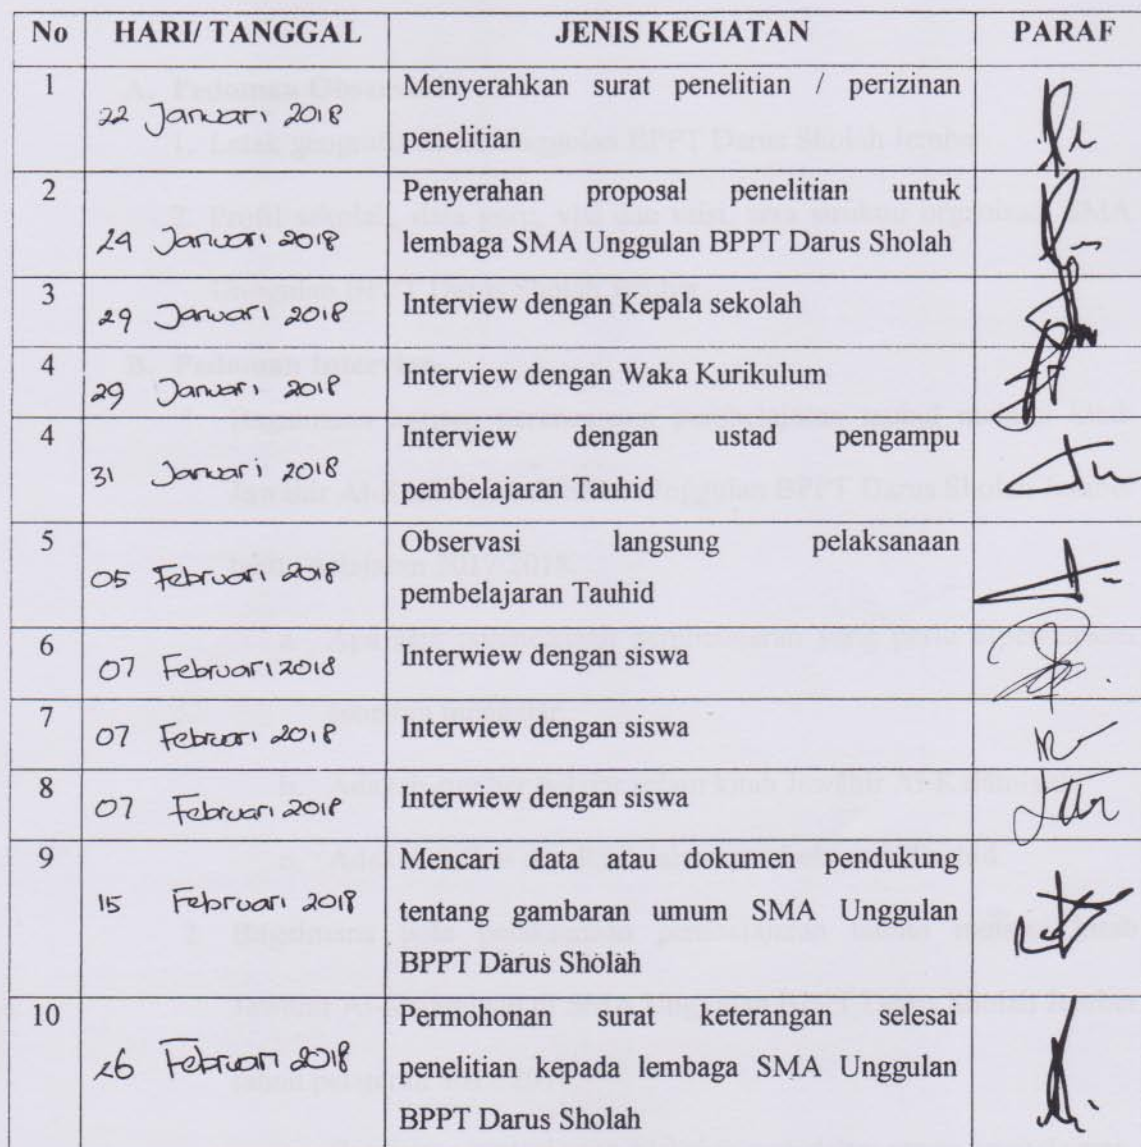 No HARI/ TANGGAL JENIS KEGIATAN PARAF
1 22 Januari 2018 Menyerahkan surat penelitian / perizinan
penelitian
2 24 Januari 2018 Penyerahan proposal penelitian untuk
lembaga SMA Unggulan BPPT Darus Sholah
3 29 Januari 2018 Interview dengan Kepala sekolah
4 29 Januari 2018 Interview dengan Waka Kurikulum
4 31 Januari 2018 Interview dengan ustad pengampu
pembelajaran Tauhid
5 05 Februari 2018 Observasi langsung pelaksanaan
pembelajaran Tauhid
6 07 Februari 2018 Interwiew dengan siswa
7 07 Februari 2018 Interwiew dengan siswa
8 07 Februari 2018 Interwiew dengan siswa
9 15 Februari 2018 Mencari data atau dokumen pendukung
tentang gambaran umum SMA Unggulan
BPPT Darus Sholah
10 26 Februari 2018 Permohonan surat keterangan selesai
penelitian kepada lembaga SMA Unggulan
BPPT Darus Sholah